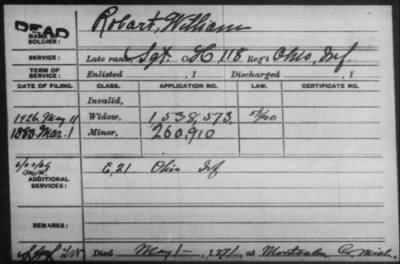 DEAD
Robart, William
NAME OF SOLDIER:
SERVICE: Late rank Sgt. H 118 Reg't Ohio, Inf.
TERM OF SERVICE: Enlisted , 1 Discharged , 1
DATE OF FILING. CLASS. APPLICATION NO. LAW. CERTIFICATE NO.
Invalid,
1926 May 11 Widow, 1538,573.
1880 Mar. 1 Minor, 260,910
ADDITIONAL SERVICES: E, 21 Ohio Inf
REMARKS:
Died May 1 , 1871, at Montcalm Co. Mich.